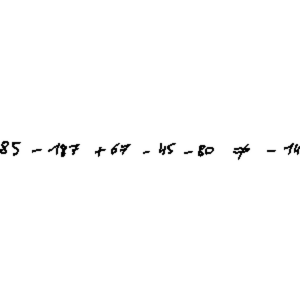 85 - 187 + 67 - 45 - 80 ≠ - 14